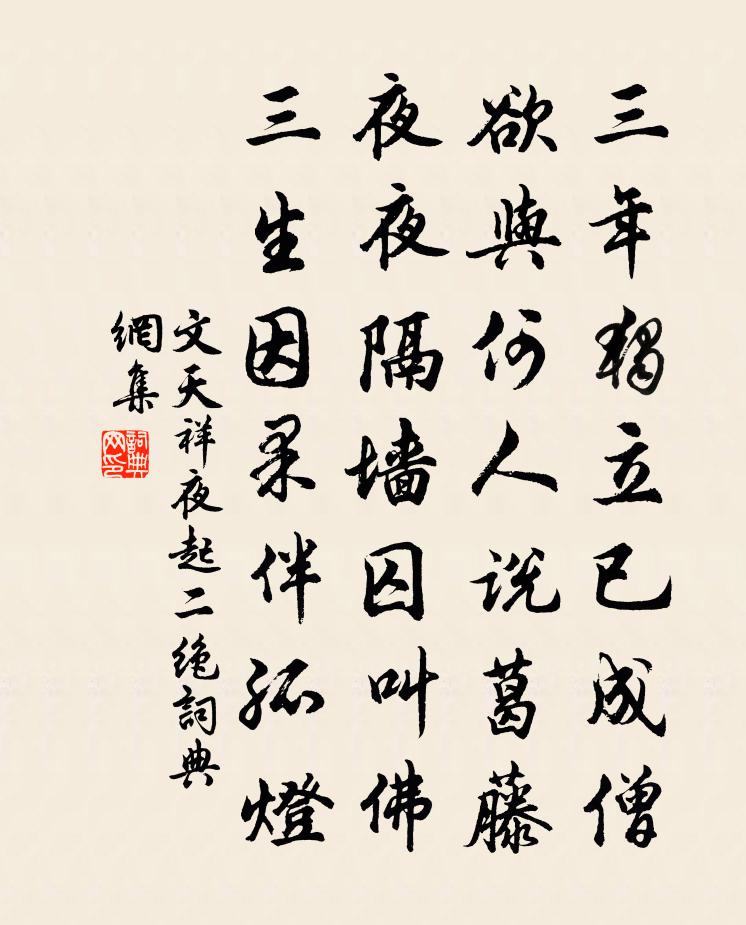 三年獨立已成僧
欲與何人说葛藤
夜夜隔墙囚叫佛
三生因果伴孤燈
文天祥夜起二絶詞典
網集
詞典
网印